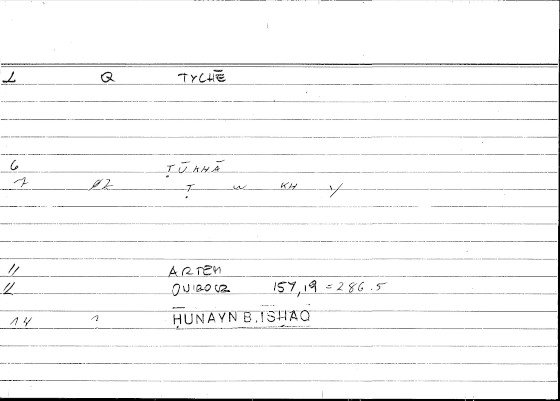 1 Q TYCHĒ
6 ṬŪKHĀ
7 ØZ Ṭ W KH Y
11 ARTEM
12 157,19 = 286.5
14 1 ḤUNAYN B. ISḤĀQ